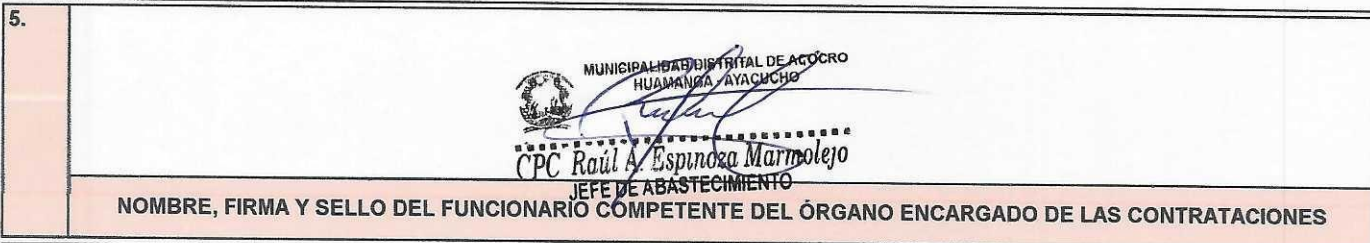 5.
MUNICIPALIDAD DISTRITAL DE ACOCRO
HUAMANGA - AYACUCHO
CPC Raúl A. Espinoza Marmolejo
JEFE DE ABASTECIMIENTO
NOMBRE, FIRMA Y SELLO DEL FUNCIONARIO COMPETENTE DEL ÓRGANO ENCARGADO DE LAS CONTRATACIONES